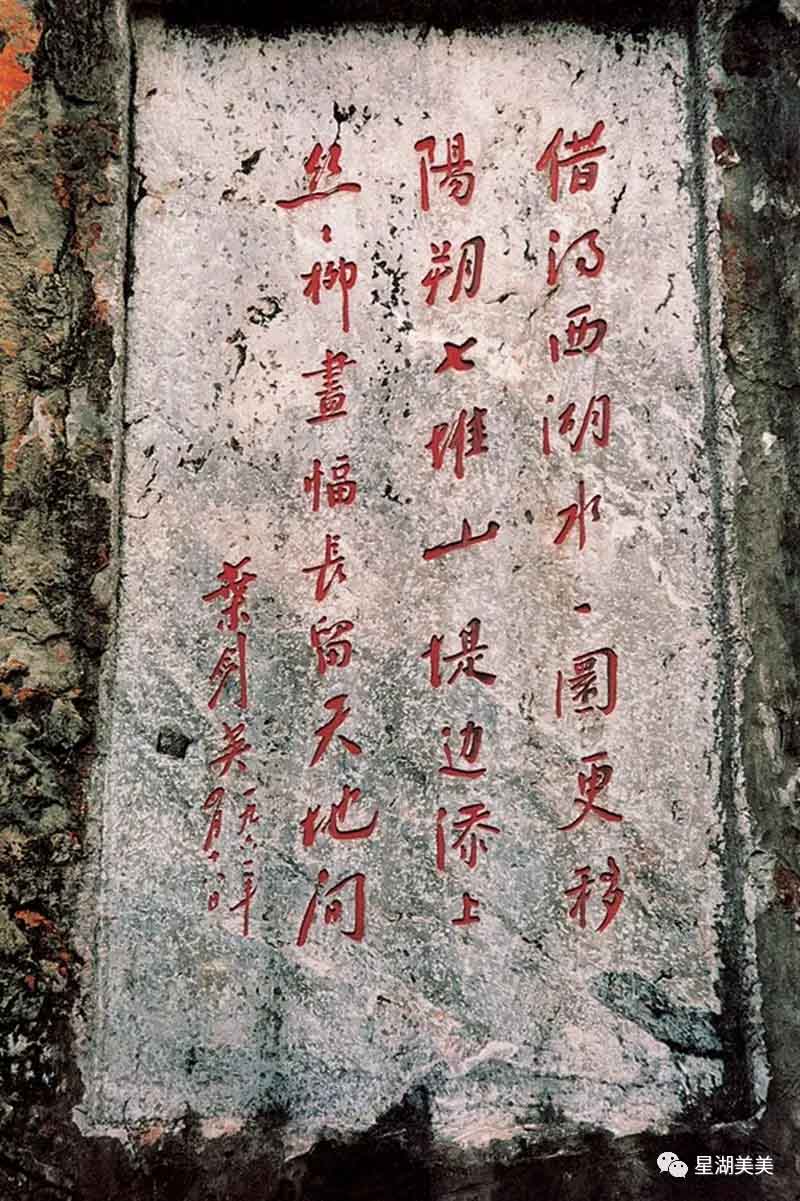 借得西湖水一圜更移
陽朔七堆山堤边添上
丝〻柳畫幅長留天地间
葉剑英
一九六一年
星湖美美